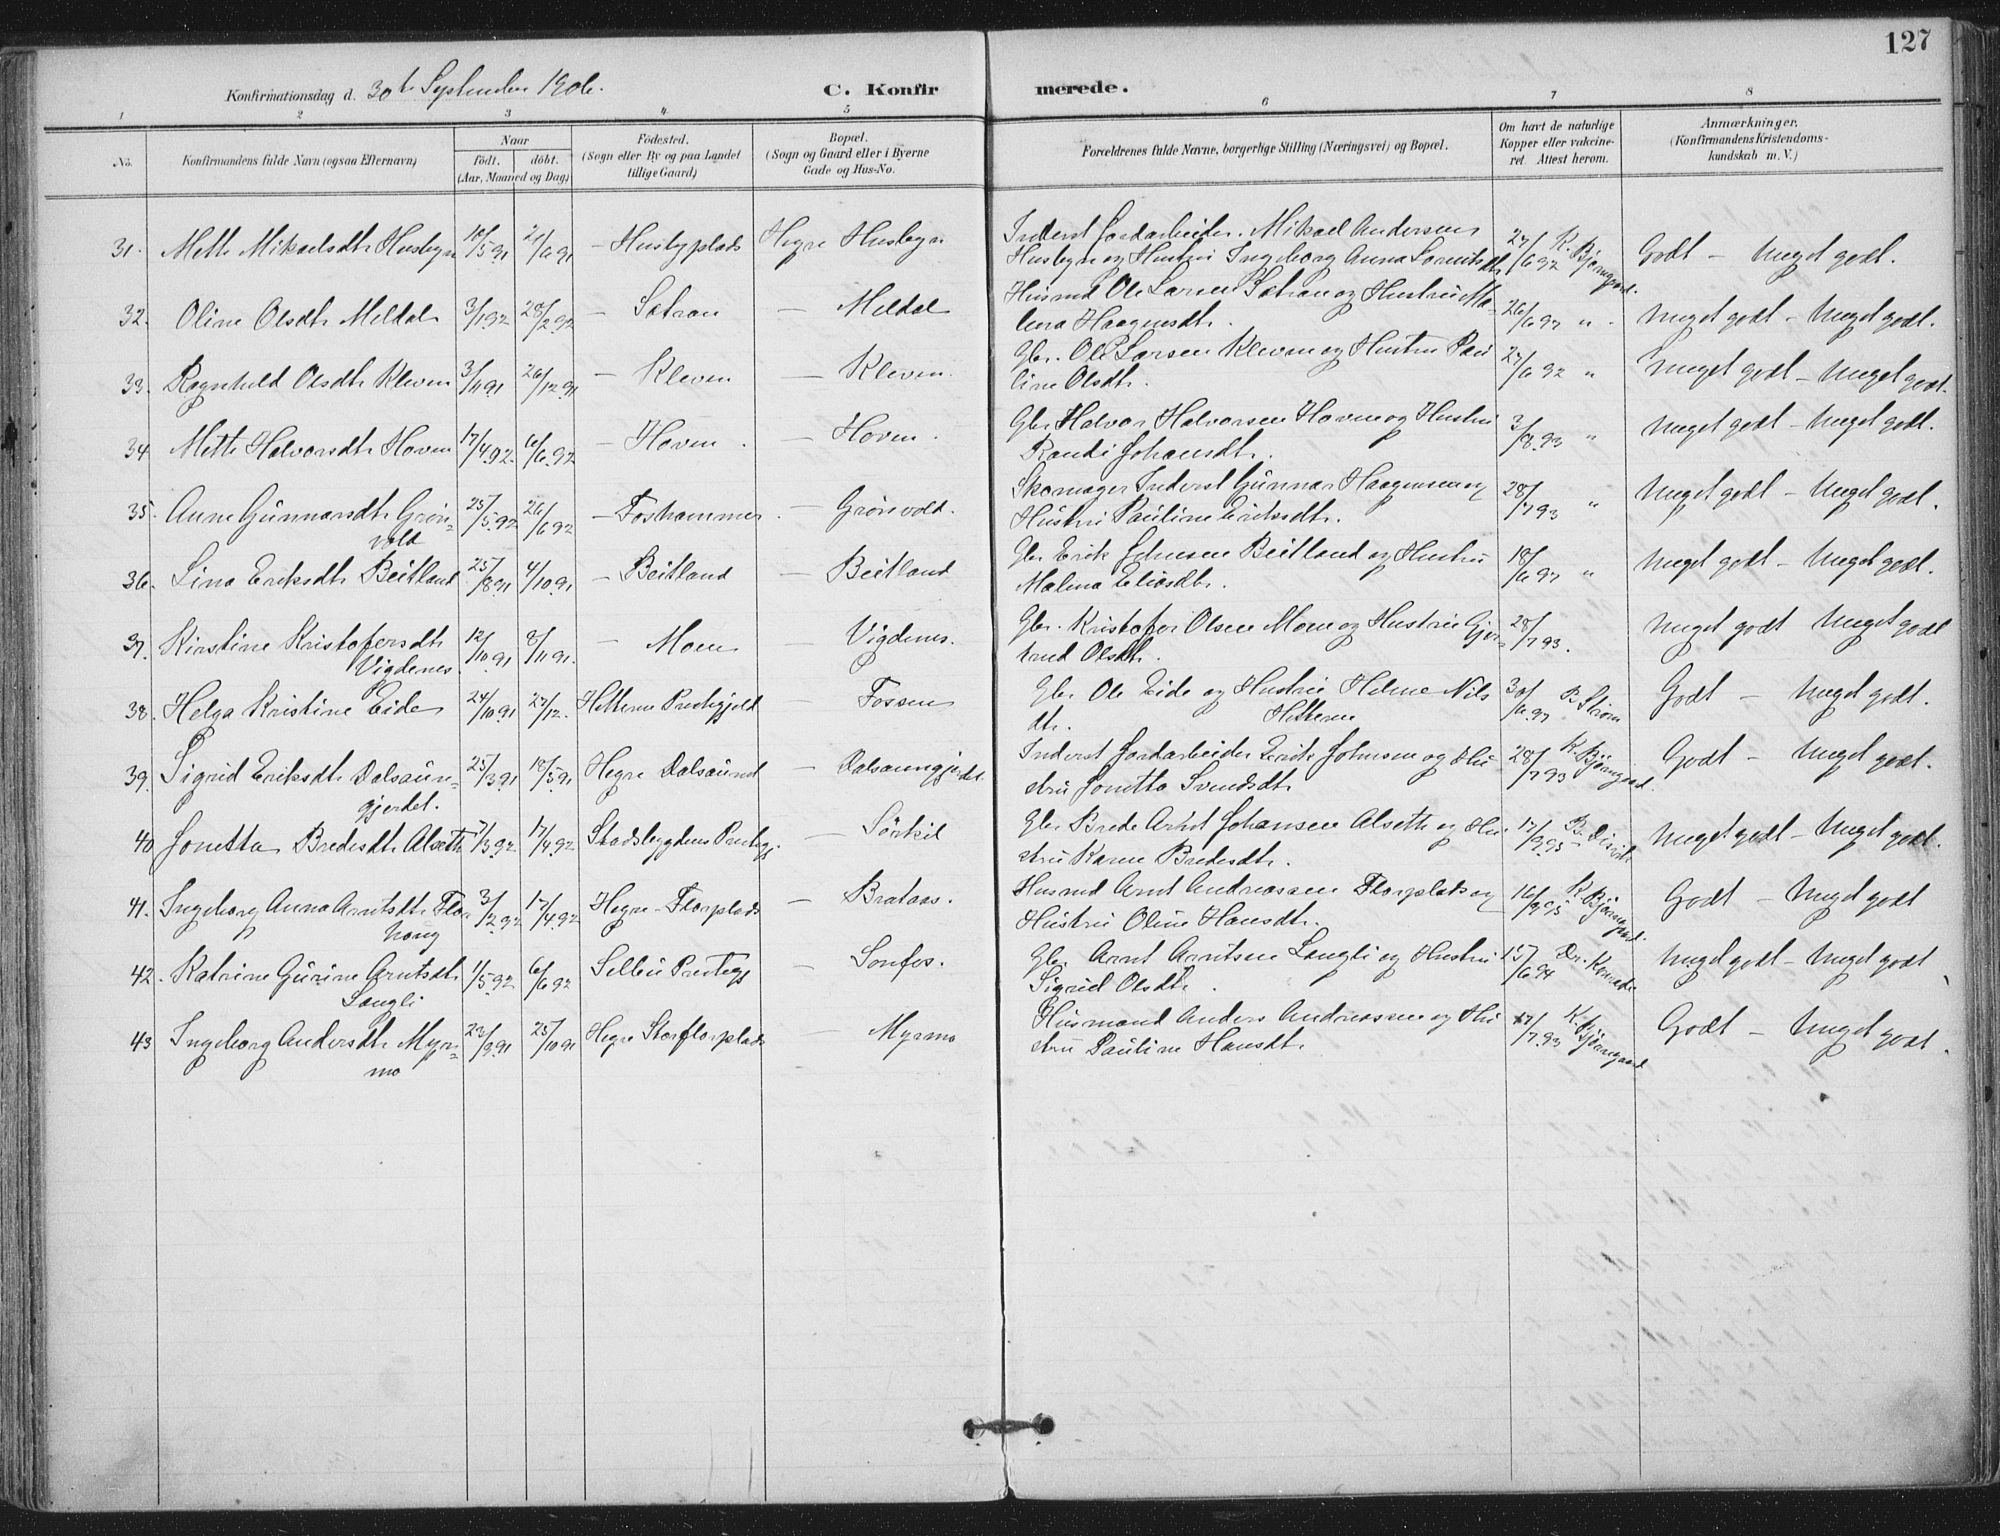 127
Konfirmationsdag d. 30te September 1906. C. Konfir merede.
1 2 3 4 5 6 7 8
No. Konfirmandens fulde Navn (ogsaa Efternavn) Naar født. døbt. (Aar, Maaned og Dag) Fødested. (Sogn eller By og paa Landet tillige Gaard) Bopæl. (Sogn og Gaard eller i Byerne Gade og Hus-No. Forældrenes fulde Navne, borgerlige Stilling (Næringsvei) og Bopæl. Om havt de naturlige Kopper eller vakcineret. Attest herom. Anmærkninger, (Konfirmandens Kristendomskundskab m. V.)
31. Mette Mikaelsdtr Husbyn 10/5 91 21/6 91 - Husbyplads Hegre Husbyn Inderst Jordarbeider Mikael Andersen
Husbyn og Hustru Ingeborg Anna Larnitsdtr 27/6 92 K. Bjørngaard. Godt - Meget godt.
32. Oline Olsdtr Meldal 3/1 92 28/2 92 - Sætran - Meldal Husmd Ole Larsen Sætran og Hustru Ma-
lena Haagensdtr. 26/6 97 " Meget godt - Meget godt.
33. Ragnhild Olsdtr Kleven 3/11 91 26/12 91 - Kleven - Kleven. Gbr. Ole Larsen Kleven og Hustru Pau
line Olsdtr. 27/6 92 " Meget godt - Meget godt.
34. Mette Halvorsdtr Hoven 17/4 92. 6/6 92 - Hoven. - Hoven. Gbr Halvor Halvorsen Hoven og Hustru
Randi Johansdtr. 3/8 93 " Meget godt - Meget godt.
35. Anne Gunnarsdtr Grön- 25/5 92 26/6 92 - Foshammer. - Grönvold. Skomager Inderst Gunnar Haagensen og
vold Hustru Pauline Eriksdtr. 28/7 93 " Meget godt - Meget godt.
36. Lina Eriksdtr Beitland 25/8 91 4/10 91 - Beitland - Beitland Gbr Erik Johnsen Beitland og Hustru
Malena Eliasdtr. 18/6 97 " Meget godt - Meget godt.
37. Kirstine Kristofersdtr 12/10 91 8/11 91. - Moen - Vigdenes. Gbr. Kristofer Olsen Moen og Hustru Gjer-
Vigdenes. trud Olsdtr. 28/7 93. Meget godt Meget godt
38. Helga Kristine Eide 24/10 91 27/12. Hitteren Prestegjeld - Fossen Gbr Ole Eide og Hustru Helene Nils
dtr. Hitteren 30/6 97 B. Strøm Godt - Meget godt.
39. Sigrid Eriksdtr Dalsaun- 25/3 91 18/5 91 Hegre Dalsaund - Dalsaungjerdet. Inderst Jordarbeider Erik Johnsen og Hu
gjerdet. stru Jonetta Svendsdtr 28/7 93 K. Bjørngaard. Godt - Meget godt.
40 Jonetta Bredesdtr Alseth 7/3 92 17/4 92 Stadsbygdens Prestegj. - Sörkil Gbr Brede Arnt Johansen Alseth og Hu-
stru Karen Bredesdtr. 17/9 95 Meget godt - Meget godt.
41. Ingeborg Anna Arntsdtr Flor 31/2 92 17/4 92 Hegre - Florplads - Brataas. Husmd Arnt Andreassen Florplads og
haug Hustru Oline Hansdtr. 16/9 95 K. Bjørngaard. Godt - Meget godt
42. Katrine Gurine Arntsdtr 1/5 92 6/6 92 Selbu Prestegj - Sonfos. Gbr Arnt Arntsen Langli og Hustru
Langli Sigrid Olsdtr. 15/6 94 Meget godt - Meget godt
43 Ingeborg Andersdtr Myr- 23/9 91 25/10 91 Hegre Storflorplads Myrmo Husmand Anders Andreassen og Hu
mo stru Pauline Hansdtr. 17/7 93 K. Bjørngaard Godt - Meget godt.